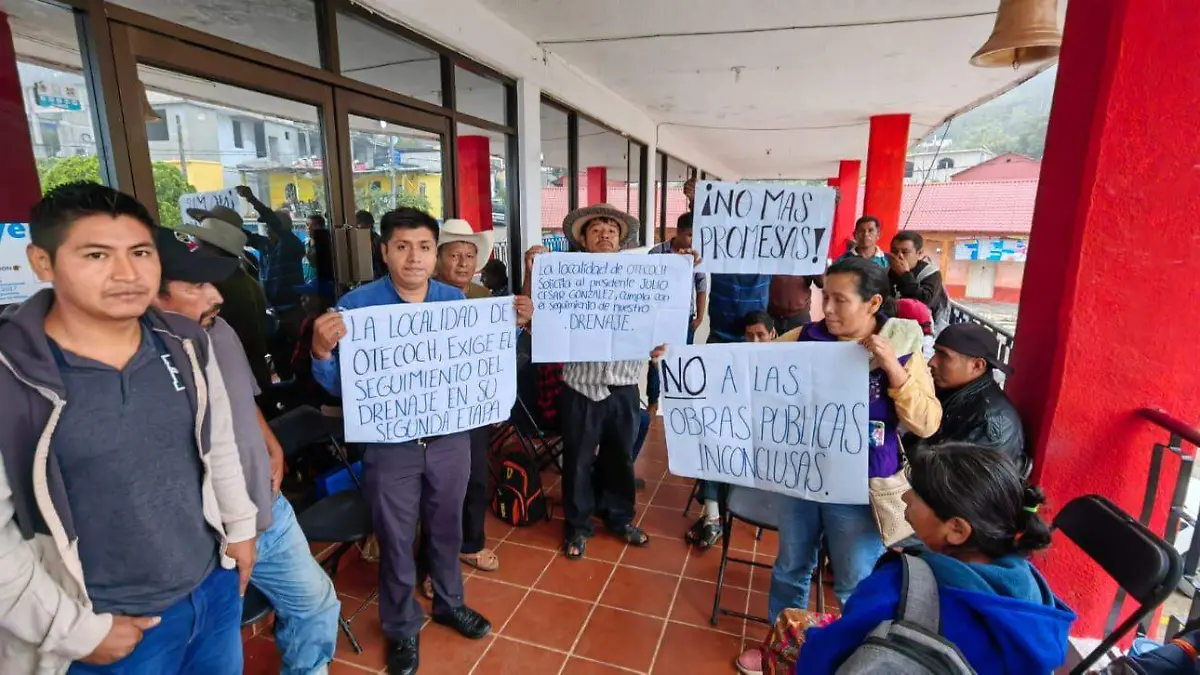 LA LOCALIDAD DE
OTECOCH, EXIGE EL
SEGUIMIENTO DEL
DRENAJE EN SU
SEGUNDA ETAPA
La localidad de OTECOCH
Solicita al presidente JULIO
CESAR GONZÁLEZ, cumpla con
el seguimiento de nuestro
DRENAJE.
¡NO MAS
PROMESAS!
NO A LAS
OBRAS PÚBLICAS
INCONCLUSAS.